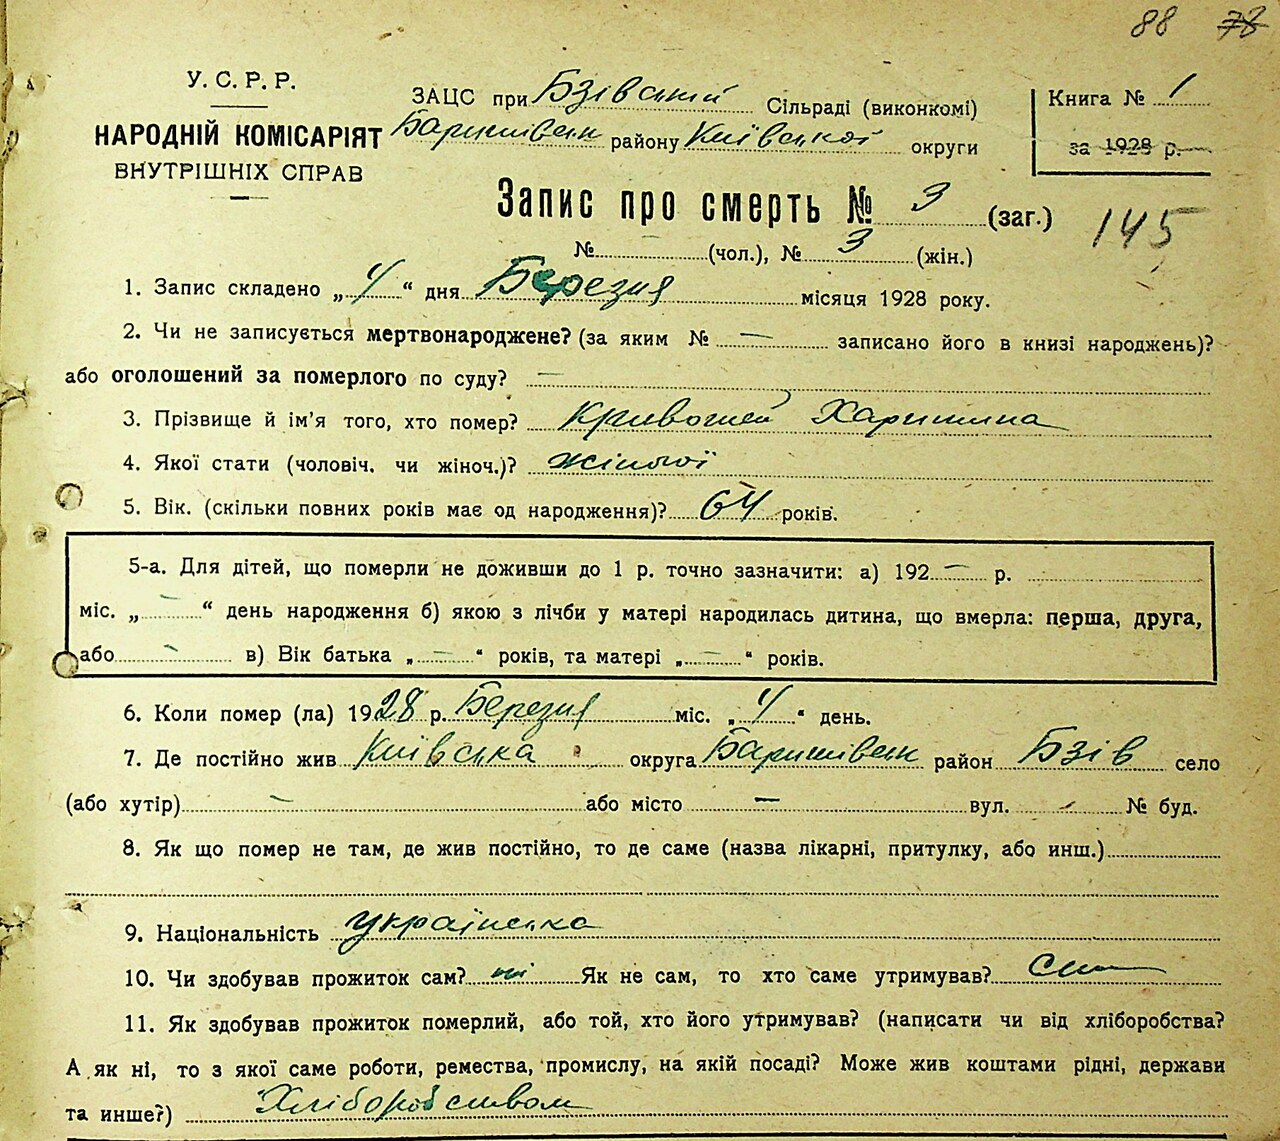 88 78
У.С.Р.Р.
НАРОДНІЙ КОМІСАРІЯТ
ВНУТРІШНІХ СПРАВ
ЗАЦС при Бзівській Сільраді (виконкомі)
Баришівськ району Київської округи
Книга № 1
за 1928 р.
Запис про смерть № 3 (заг.)
145
№ — (чол.), № 3 (жін.)
1. Запис складено „ 4 “ дня Березня місяця 1928 року.
2. Чи не записується мертвонароджене? (за яким № — записано його в книзі народжень)?
або оголошений за померлого по суду? —
3. Прізвище й ім’я того, хто помер? Кривошей Харитина
4. Якої стати (чоловіч. чи жіноч.)? жіночої
5. Вік. (скільки повних років має од народження)? 64 років.
5-а. Для дітей, що померли не доживши до 1 р. точно зазначити: а) 192 — р.
міс. „ — “ день народження б) якою з лічби у матері народилась дитина, що вмерла: перша, друга,
або — в) Вік батька „ — “ років, та матері „ — “ років.
6. Коли помер (ла) 1928 р. Березня міс. „ 4 “ день.
7. Де постійно жив Київська округа Баришівськ район Бзів село
(або хутір) — або місто — вул. — № буд.
8. Як що помер не там, де жив постійно, то де саме (назва лікарні, притулку, або инш.)
9. Національність українська
10. Чи здобував прожиток сам? ні Як не сам, то хто саме утримував? син
11. Як здобував прожиток померлий, або той, хто його утримував? (написати чи від хліборобства?
А як ні, то з якої саме роботи, ремества, промислу, на якій посаді? Може жив коштами рідні, держави
та инше?) Хліборобством